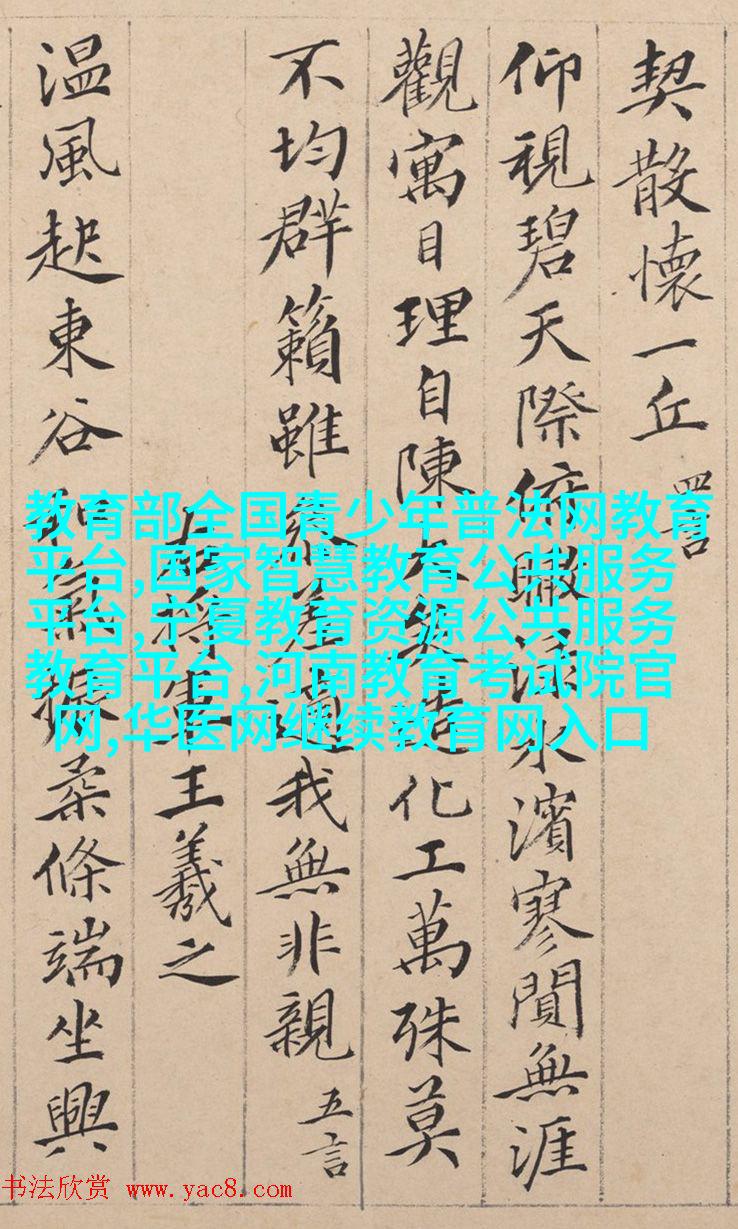 契散懷一丘 四言
仰視碧天際俯瞰淥水濱寥閴無涯
觀寓目理自陳大矣造化工萬殊莫
不均群籟雖參差適我無非親 五言
右將軍王羲之
温風起東谷和氣振柔條端坐興
教育部全国青少年普法网教育
平台,国家智慧教育公共服务
平台,宁夏教育资源公共服务
教育平台,河南教育考试院官
网,华医网继续教育网入口
书法欣赏 www.yac8.com